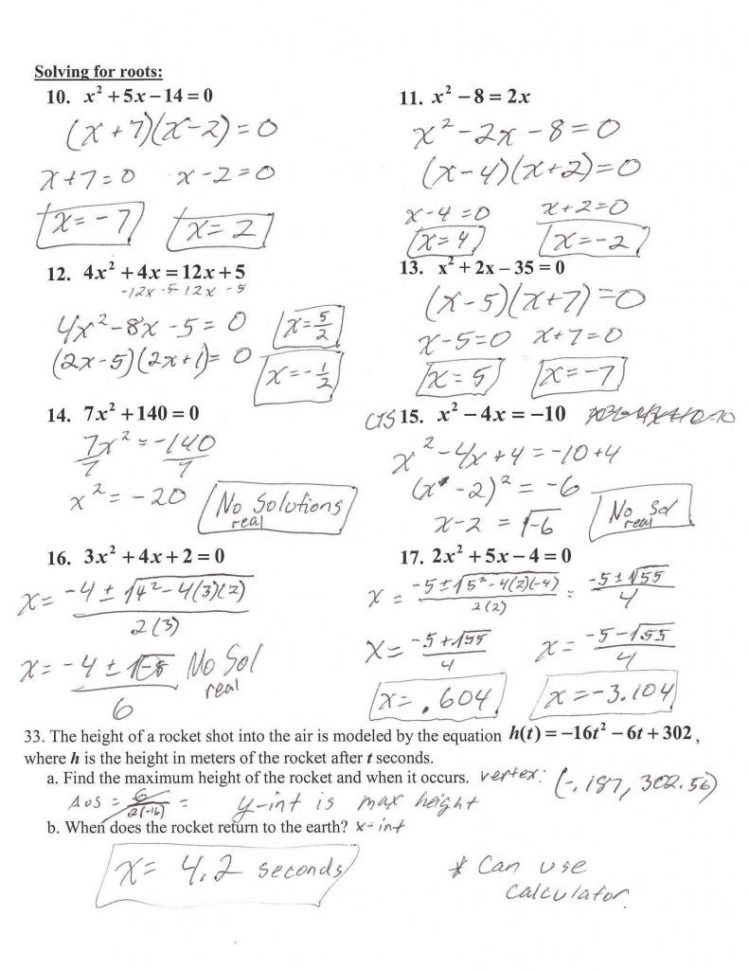 Solving for roots:
10. x² + 5x – 14 = 0
(x + 7)(x - 2) = 0
x + 7 = 0 x - 2 = 0
x = -7 x = 2
11. x² – 8 = 2x
x² - 2x - 8 = 0
(x - 4)(x + 2) = 0
x - 4 = 0 x + 2 = 0
x = 4 x = -2
12. 4x² + 4x = 12x + 5
-12x -5 12x -5
4x² - 8x - 5 = 0 x = 5/2
(2x - 5)(2x + 1) = 0 x = -1/2
13. x² + 2x – 35 = 0
(x - 5)(x + 7) = 0
x - 5 = 0 x + 7 = 0
x = 5 x = -7
14. 7x² + 140 = 0
7x² = -140
7 7
x² = -20 No Solutions
real
CTS 15. x² – 4x = –10
x² - 4x + 4 = -10 + 4
(x - 2)² = -6
x - 2 = √-6 No Sol
real
16. 3x² + 4x + 2 = 0
x = -4 ± √4² - 4(3)(2)
2(3)
x = -4 ± √-8 No Sol
6 real
17. 2x² + 5x – 4 = 0
x = -5 ± √5² - 4(2)(-4) = -5 ± √55
2(2) 4
x = -5 + √55 x = -5 - √55
4 4
x = .604 x = -3.104
33. The height of a rocket shot into the air is modeled by the equation h(t) = –16t² – 6t + 302,
where h is the height in meters of the rocket after t seconds.
a. Find the maximum height of the rocket and when it occurs. vertex: (-.187, 302.56)
AOS = 6/2(-16) = y-int is max height
b. When does the rocket return to the earth? x-int
x = 4.2 seconds
* Can use
calculator